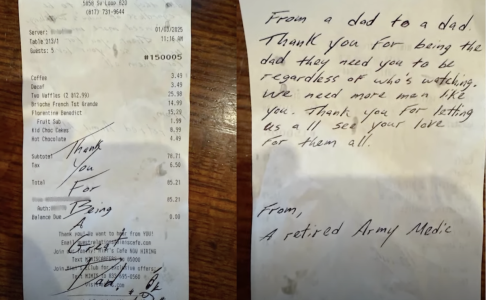 5836 SW Loop 820
(817) 731-9644
Server:
01/03/2025
Table 313/1
11:36 AM
Guests: 5
#150005
Coffee 3.49
Decaf 3.49
Two Waffles (2 @12.99) 25.98
Brioche French Tst Grande 14.99
Florentine Benedict 15.29
Fruit Sub 1.99
Kid Choc Cakes 8.99
Hot Chocolate 4.49
Subtotal 78.71
Tax 6.50
Total 85.21
85.21
Auth:
Balance Due 0.00
Thank you! We want to hear from YOU!
Thank
You
For
Being
A
Great
Dad!
From a dad to a dad.
Thank you for being the
dad they need you to be
regardless of who's watching.
We need more men like
you. Thank you for letting
us all see your love
for them all.
From,
A retired Army Medic